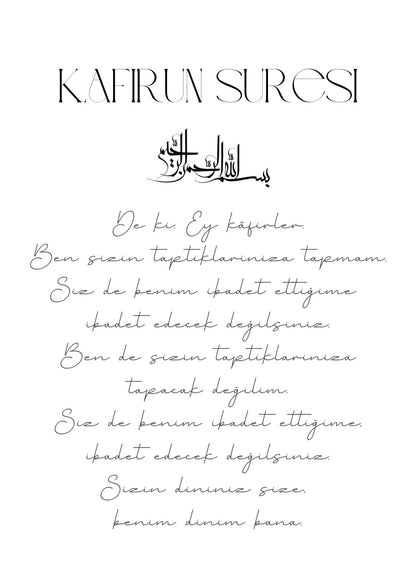 KAFIRUN SURESI
بسم الله الرحمن الرحيم
De ki: Ey kâfirler,
Ben sizin taptıklarınıza tapmam.
Siz de benim ibadet ettiğime
ibadet edecek değilsiniz.
Ben de sizin taptıklarınıza
tapacak değilim.
Siz de benim ibadet ettiğime,
ibadet edecek değilsiniz.
Sizin dininiz size,
benim dinim bana.